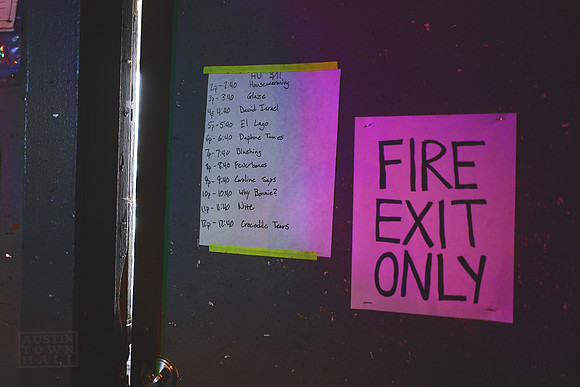 HU $11
2p - 2:40 Housewarming
3p - 3:40 Glaze
4p - 4:40 David Israel
5p - 5:40 El Lago
6p - 6:40 Daphne Tunes
7p - 7:40 Blushing
8p - 8:40 Feverbones
9p - 9:40 Caroline Says
10p - 10:40 Why Bonnie?
11p - 11:40 Nite
12p - 12:40 Crocodile Tears
FIRE
EXIT
ONLY
AUSTIN
TOWN
HALL